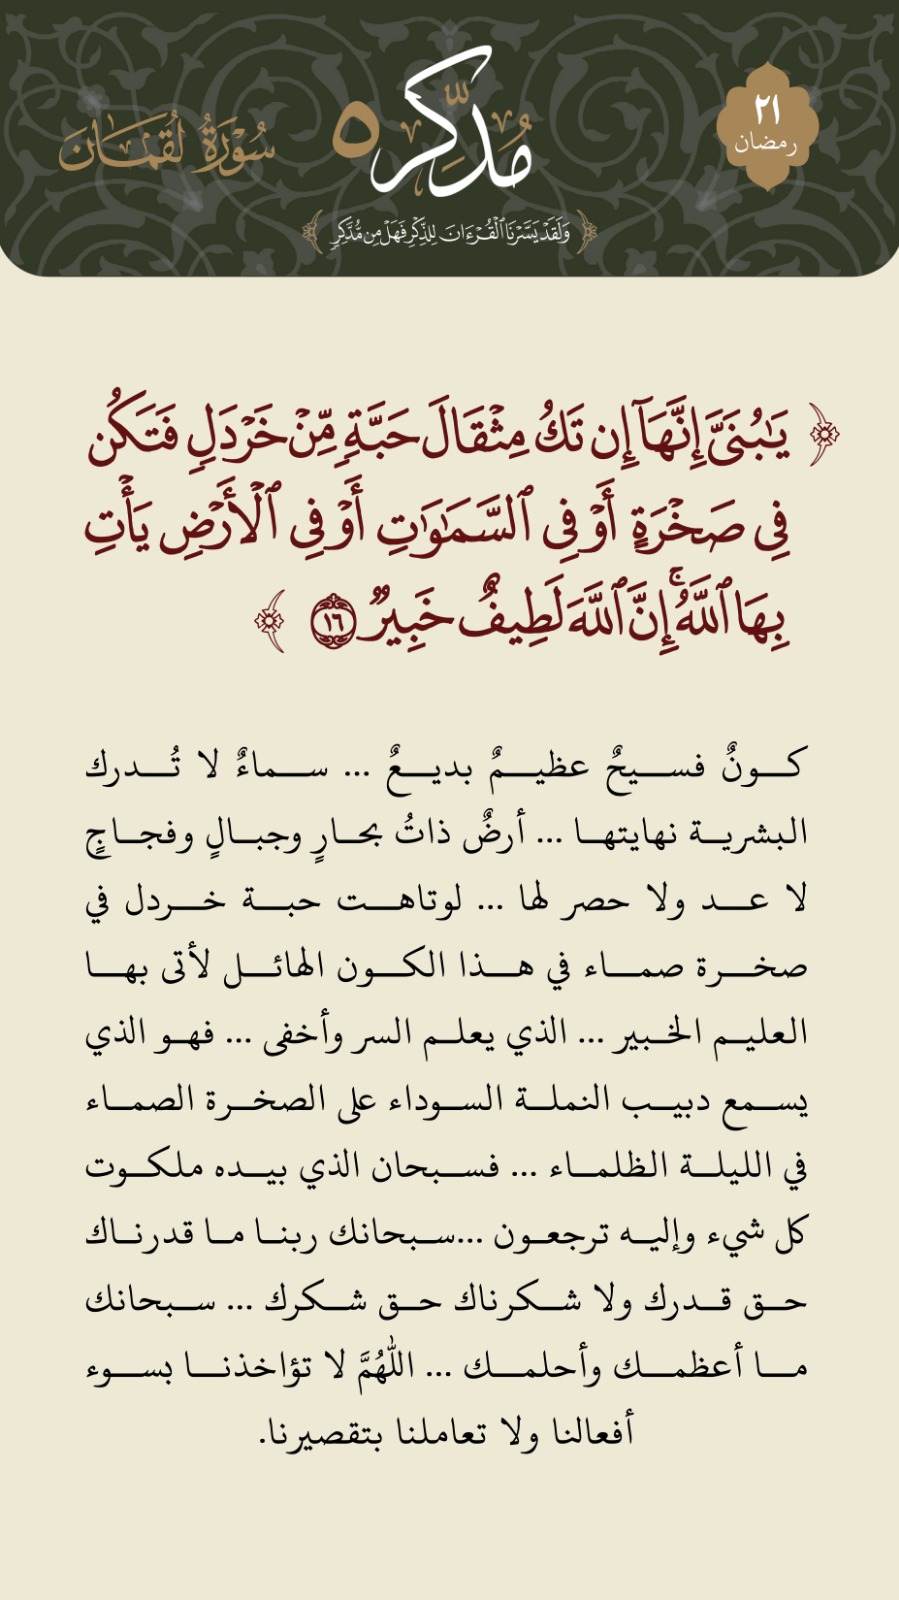 ٢١
رمضان
مُدَّكِر ٥
سُورَةُ لُقْمَان
﴿وَلَقَدْ يَسَّرْنَا ٱلْقُرْءَانَ لِلذِّكْرِ فَهَلْ مِن مُّدَّكِرٍ﴾
﴿ يَـٰبُنَىَّ إِنَّهَآ إِن تَكُ مِثْقَالَ حَبَّةٍ مِّنْ خَرْدَلٍ فَتَكُن
فِى صَخْرَةٍ أَوْ فِى ٱلسَّمَـٰوَٰتِ أَوْ فِى ٱلْأَرْضِ يَأْتِ
بِهَا ٱللَّهُ ۚ إِنَّ ٱللَّهَ لَطِيفٌ خَبِيرٌ ١٦ ﴾
كونٌ فسيحٌ عظيمٌ بديعٌ ... سماءٌ لا تُدرك
البشرية نهايتها ... أرضٌ ذاتُ بحارٍ وجبالٍ وفجاجٍ
لا عد ولا حصر لها ... لوتاهت حبة خردل في
صخرة صماء في هذا الكون الهائل لأتى بها
العليم الخبير ... الذي يعلم السر وأخفى ... فهو الذي
يسمع دبيب النملة السوداء على الصخرة الصماء
في الليلة الظلماء ... فسبحان الذي بيده ملكوت
كل شيء وإليه ترجعون ...سبحانك ربنا ما قدرناك
حق قدرك ولا شكرناك حق شكرك ... سبحانك
ما أعظمك وأحلمك ... اللَّهُمَّ لا تؤاخذنا بسوء
أفعالنا ولا تعاملنا بتقصيرنا.